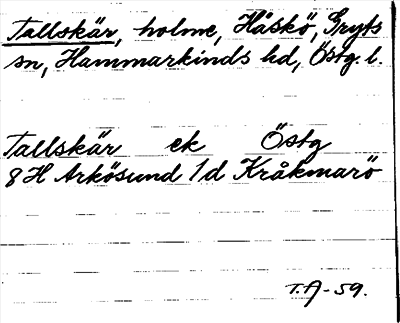 Tallskär, holme, Håskö, Gryts
sn, Hammarkinds hd, Östg. l.
Tallskär ek Östg
8H Arkösund 1d Kråkmarö
T.A-59.